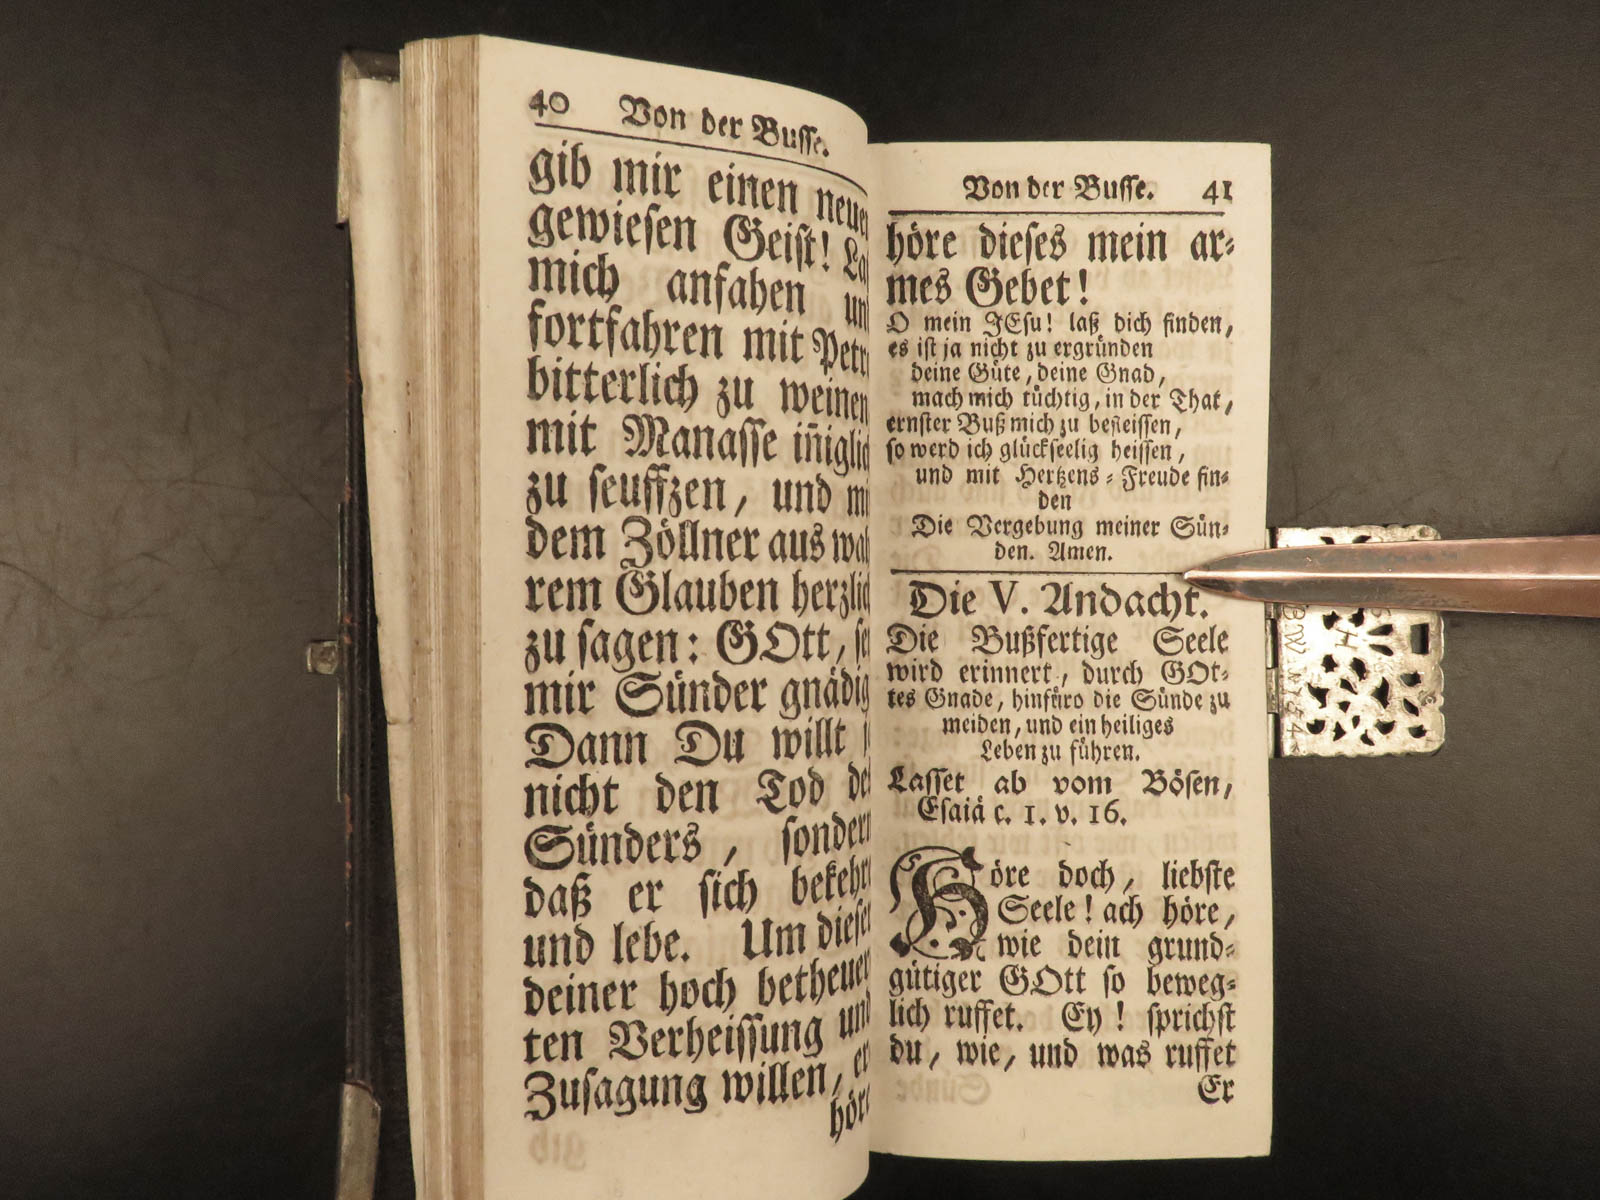 40 Von der Busse.
gib mir einen neuen
gewiesen Geist! Laß
mich anfahen und
fortfahren mit Petro
bitterlich zu weinen
mit Manasse iñiglich
zu seuffzen, und mit
dem Zöllner aus wah
rem Glauben herzlich
zu sagen: GOtt, sey
mir Sünder gnädig
Dann Du willt ja
nicht den Tod des
Sünders, sondern
daß er sich bekehre
und lebe. Um dieser
deiner hoch betheuer
ten Verheissung und
Zusagung willen, er
höre
Von der Busse. 41
höre dieses mein ar-
mes Gebet!
O mein JEsu! laß dich finden,
es ist ja nicht zu ergründen
deine Güte, deine Gnad,
mach mich tüchtig, in der That,
ernster Buß mich zu befleissen,
so werd ich glückseelig heissen,
und mit Hertzens-Freude fin-
den
Die Vergebung meiner Sün-
den. Amen.
Die V. Andacht.
Die Bußfertige Seele
wird erinnert, durch GOt-
tes Gnade, hinfüro die Sünde zu
meiden, und ein heiliges
Leben zu führen.
Lasset ab vom Bösen,
Esaiä c. 1. v. 16.
Höre doch, liebste
Seele! ach höre,
wie dein grund-
gütiger GOtt so beweg-
lich ruffet. Ey! sprichst
du, wie, und was ruffet
Er